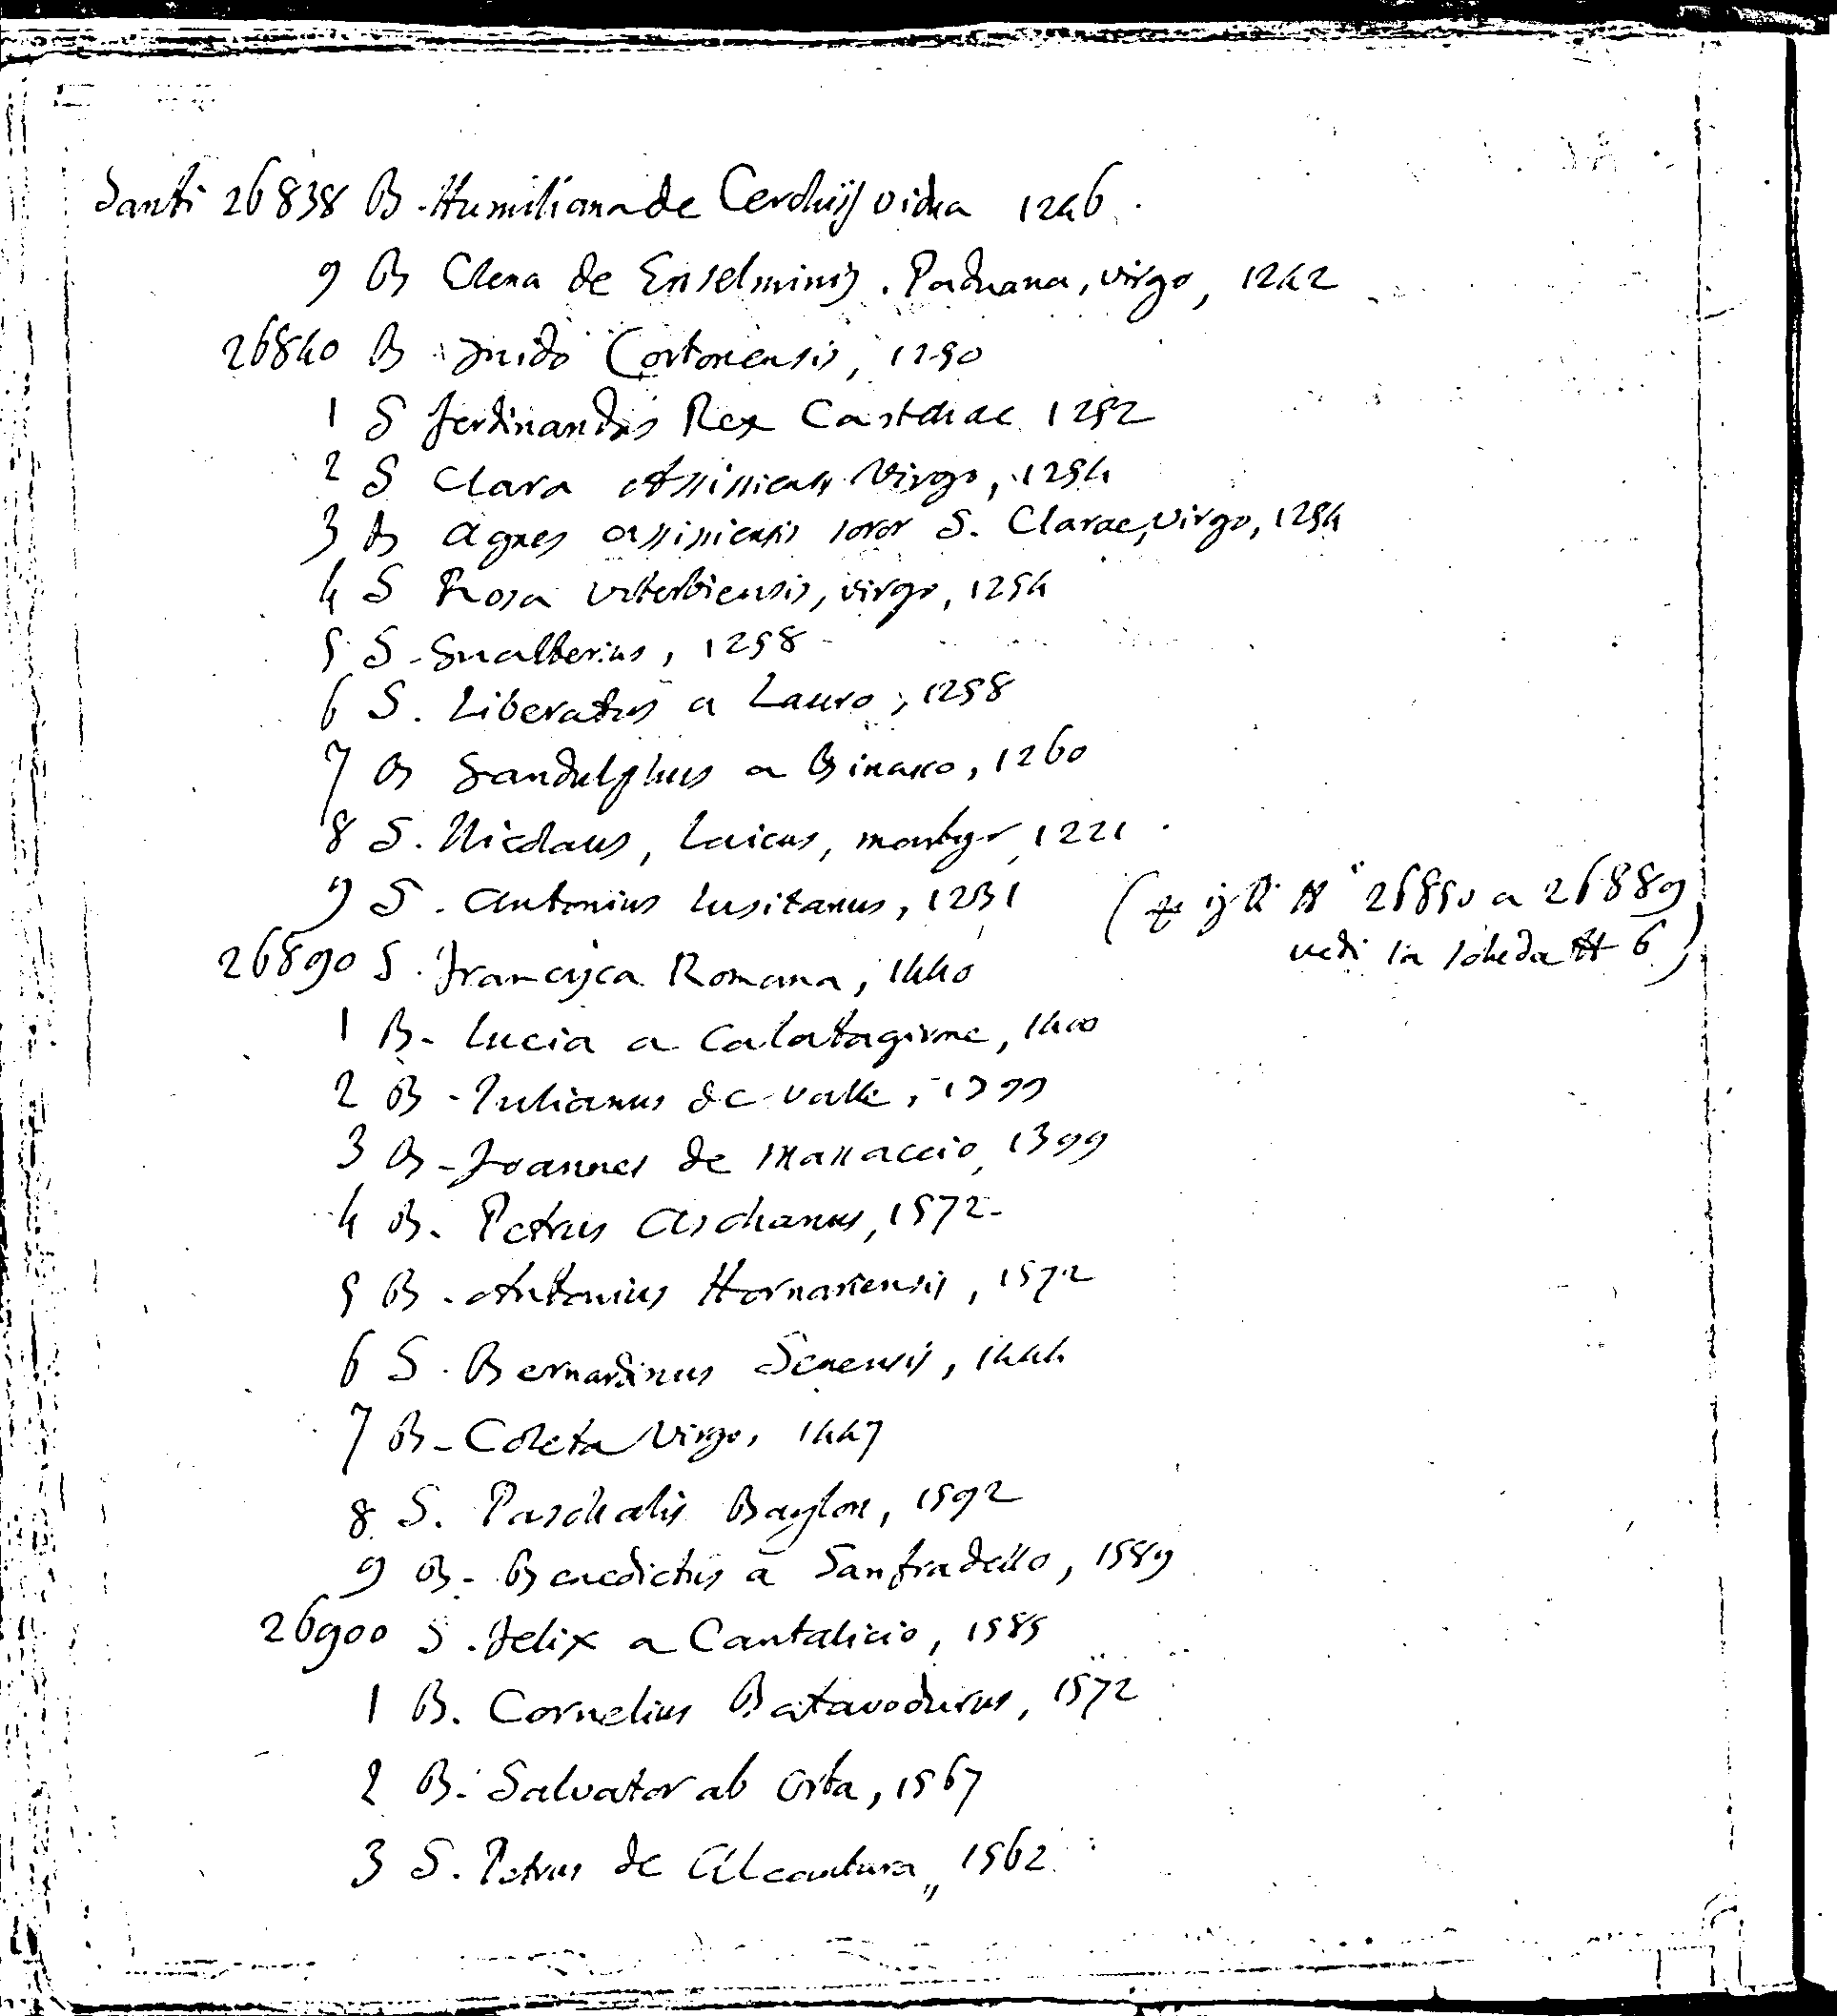 Santi 26838 B. Humiliana de Cerchijs vidua 1246.
9 B Elena de Enselminis. Paduana, virgo, 1242
26840 B Guido Cortonensis, 1250
1 S Ferdinandus Rex Castellae 1252
2 S Clara Assisiensis Virgo, 1254
3 B Agnes Assisiensis soror S. Clarae, virgo, 1254
4 S Rosa Viterbiensis, virgo, 1254
5 S. Gualterius, 1258
6 S. Liberatus a Lauro, 1258
7 B Gandulphus a Binasco, 1260
8 S. Nicolaus, Laicus, martyr, 1221.
9 S. Antonius Lusitanus, 1231 ( 26850 a 26889
vedi la scheda # 6)
26890 S. Francisca Romana, 1440
1 B. Lucia a Calatagirone, 1400
2 B. Iulianus de Valle, 1399
3 B. Joannes de Massaccio, 1399
4 B. Petrus Aschanus, 1572
5 B. Antonius Hornariensis, 1572
6 S. Bernardinus Senensis, 1444
7 B. Coleta Virgo, 1447
8 S. Paschalis Baylon, 1592
9 B. Benedictus a Sanfradello, 1589
26900 S. Felix a Cantalicio, 1585
1 B. Cornelius Batavodurus, 1572
2 B. Salvator ab Orta, 1567
3 S. Petrus de Alcantara, 1562